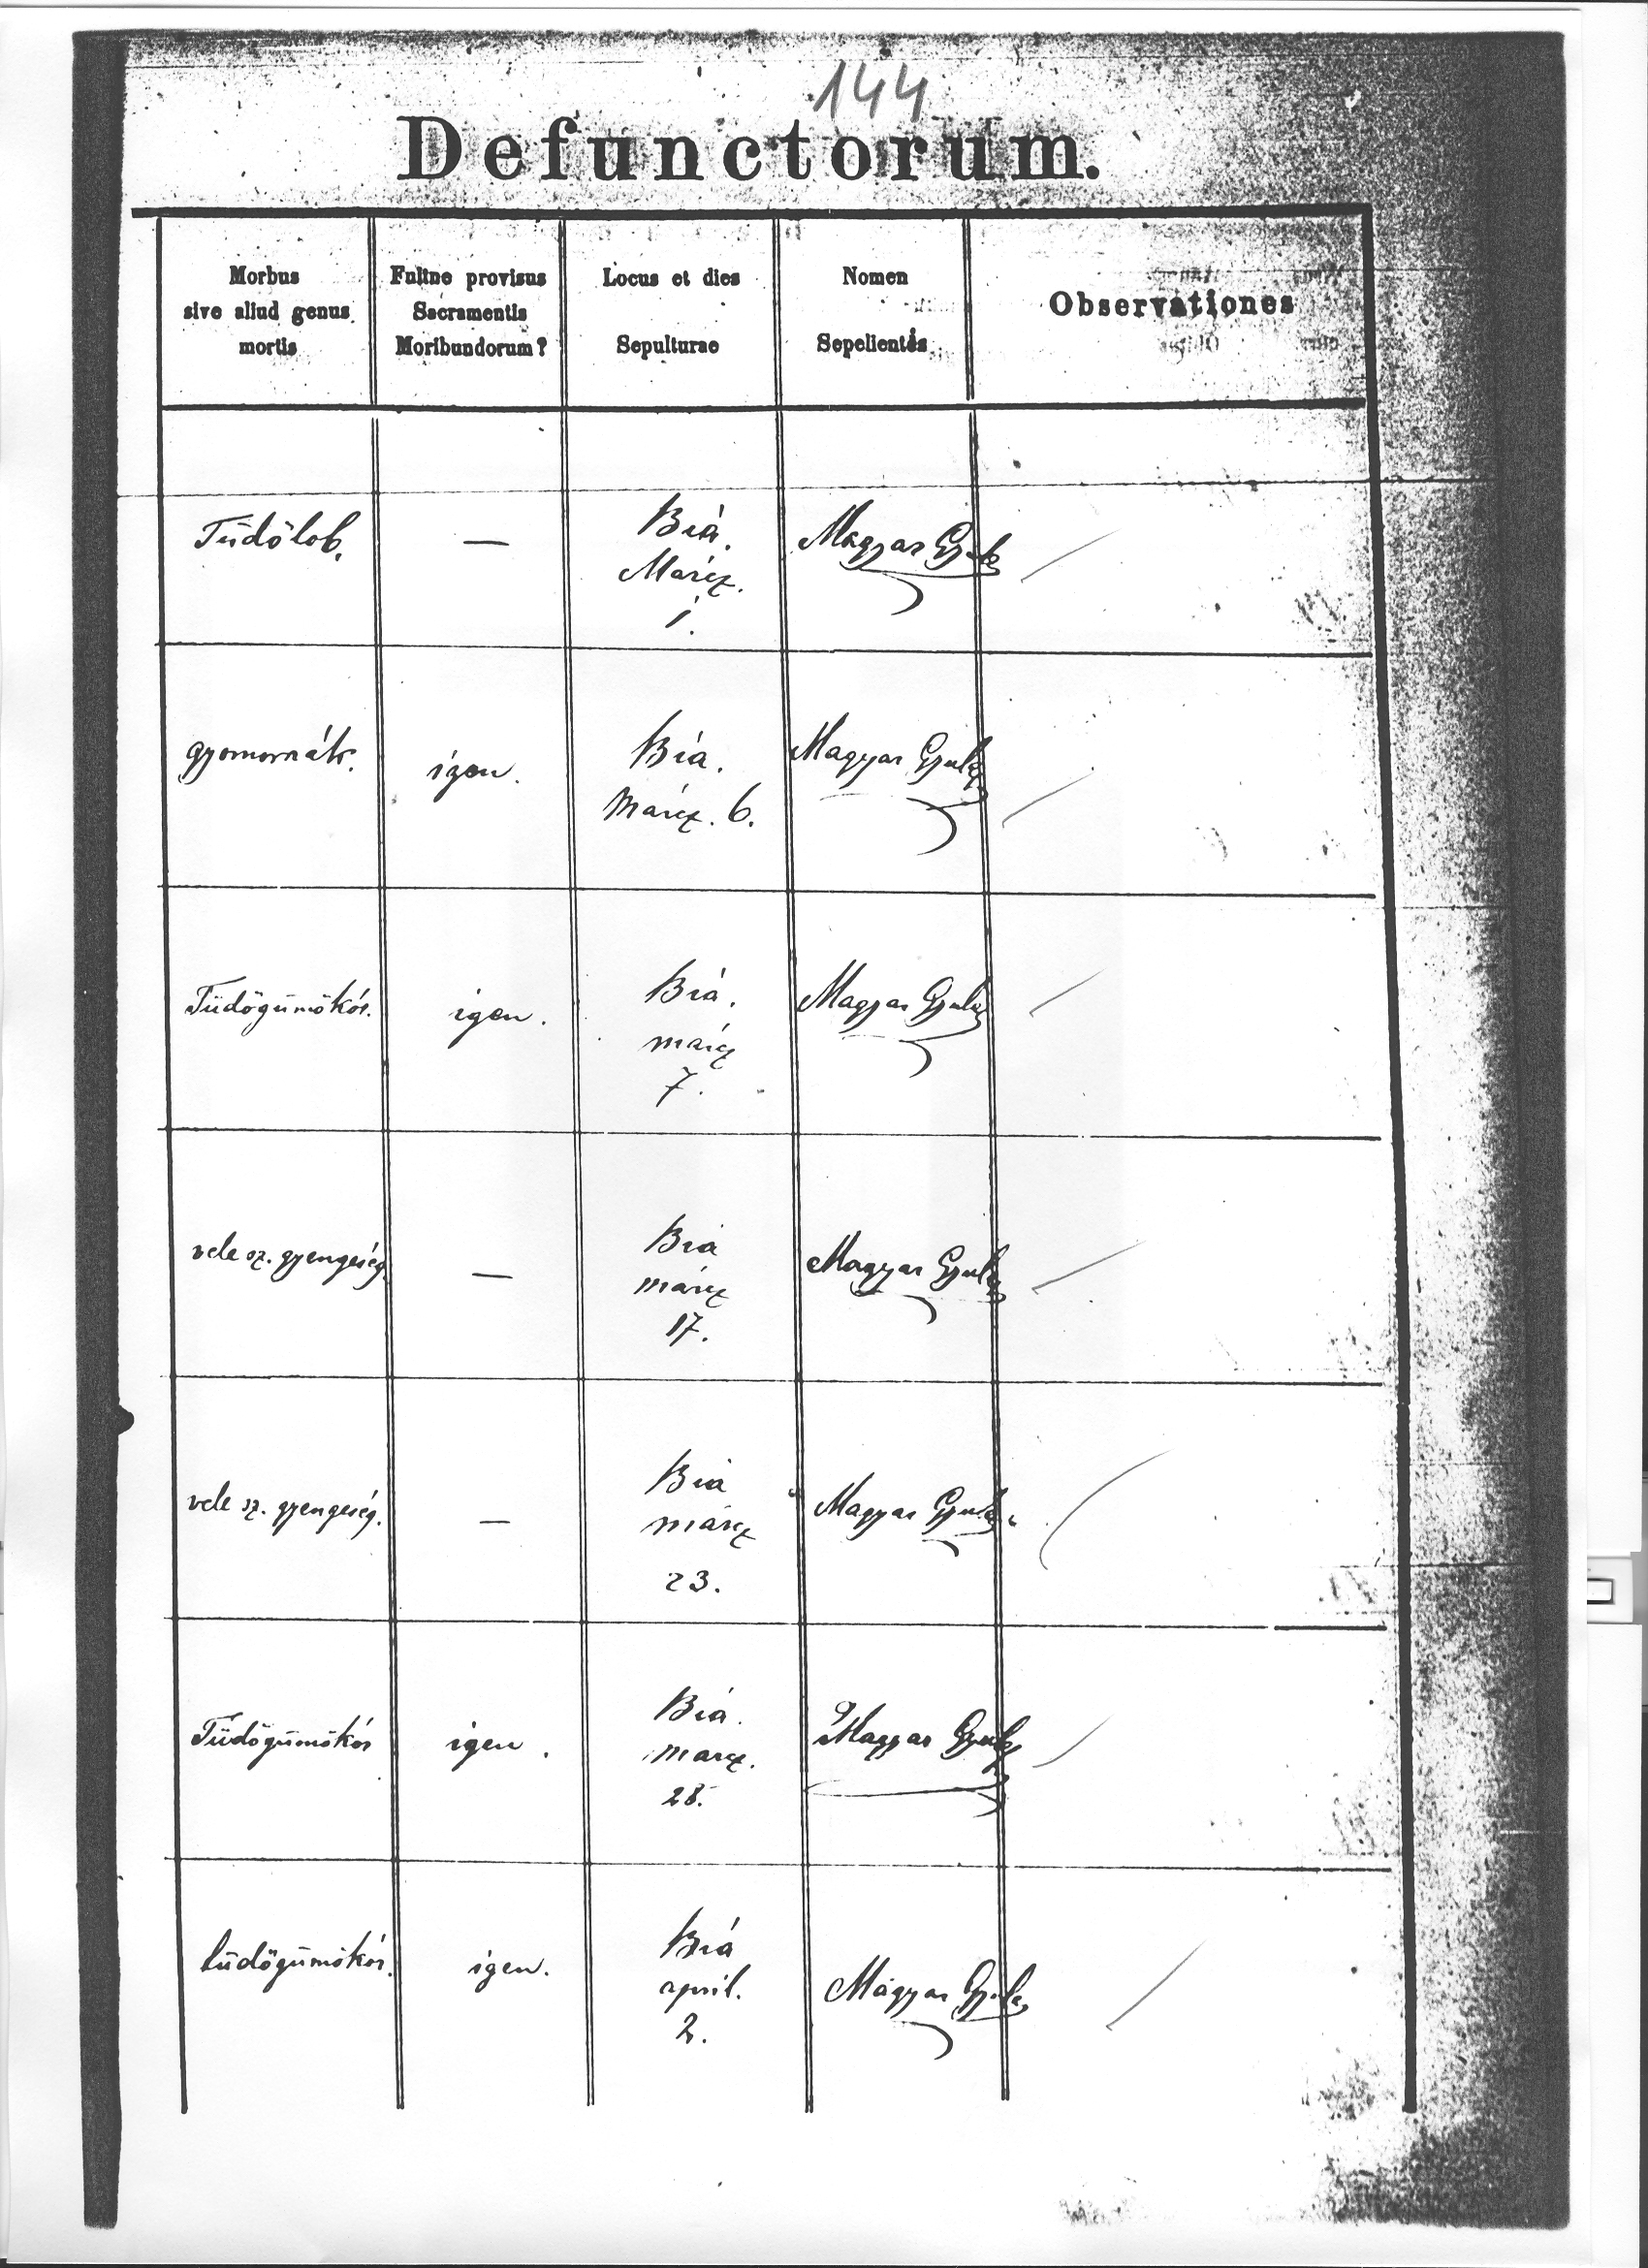 144
Defunctorum.
Morbus
sive aliud genus
mortis
Fuitne provisus
Sacramentis
Moribundorum?
Locus et dies
Sepulturae
Nomen
Sepelientis
Observationes
Tüdőlob.
—
Bia.
Márcz.
1.
Magyar Gyula
gyomorrák.
igen.
Bia.
márcz. 6.
Magyar Gyula
Tüdőgümőkór.
igen.
Bia.
márcz
7.
Magyar Gyula
vele sz. gyengeség
—
Bia
márcz
17.
Magyar Gyula
vele sz. gyengeség.
—
Bia
márcz
23.
Magyar Gyula
Tüdőgümőkór
igen.
Bia.
marcz.
28.
Magyar Gyula
tüdőgümőkór.
igen.
Bia
april.
2.
Magyar Gyula